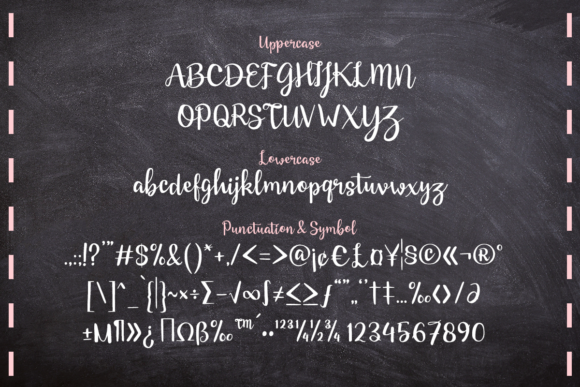 Uppercase
ABCDEFGHIJKLMN
OPQRSTUVWXYZ
Lowercase
abcdefghijklmnopqrstuvwxyz
Punctuation & Symbol
.,:;!?'"#$%&()*+,/<=>@¡¢€£¤¥¦§©«¬®°
[\]^_`{|}~×÷∑−√∞∫≠≤≥ƒ“”„‘’†‡…‰‹›/∂
±µ¶»¿∏Ωß‰™´··¹²³¼½¾1234567890